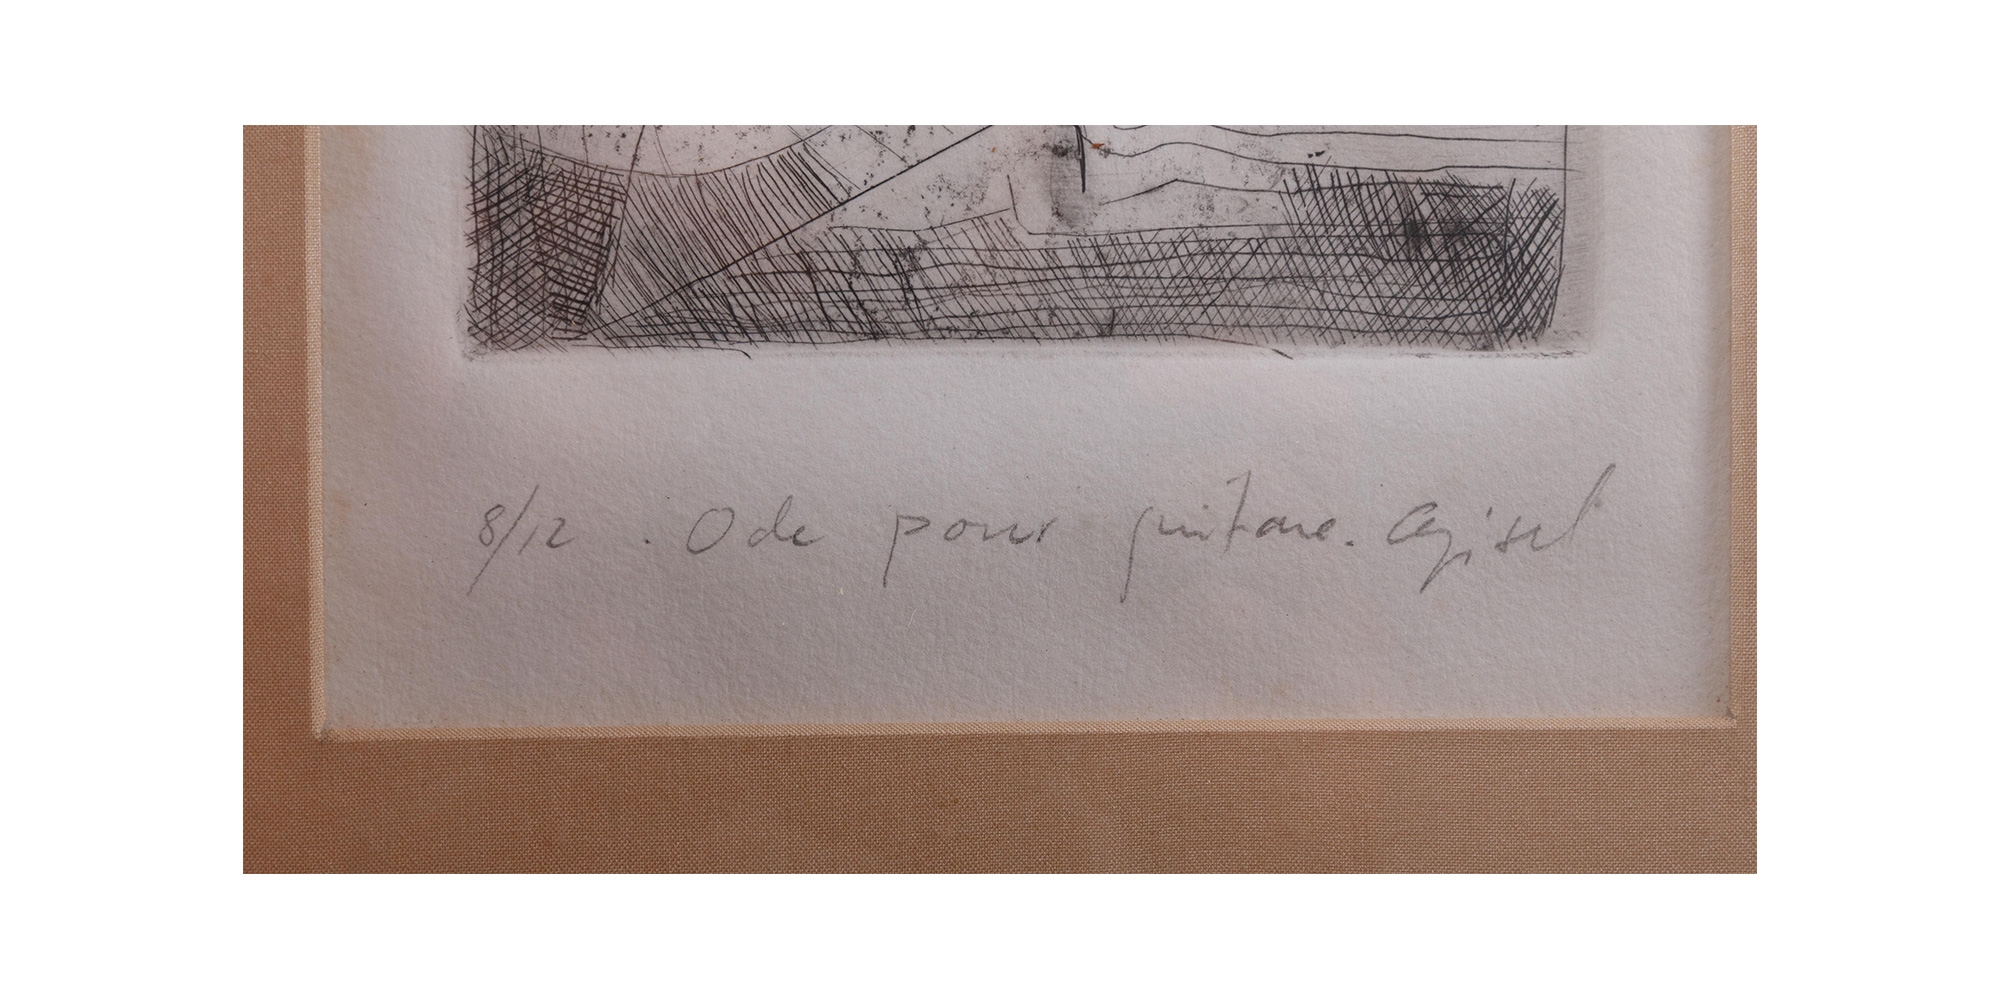 8/12 . Ode pour guitare. Agisel